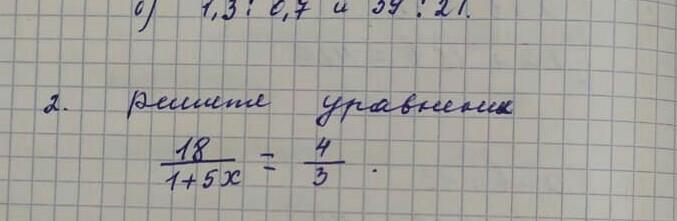 б) 1,3 : 0,7 и 39 : 21.
2. Решите уравнение
18/1+5x = 4/3.